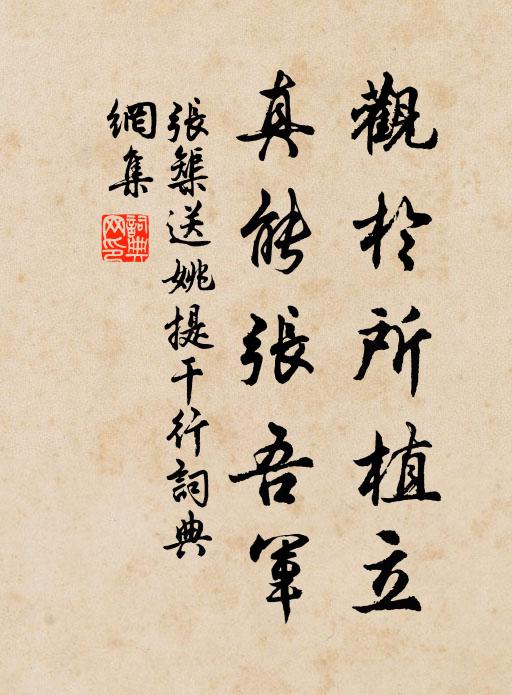 觀於所植立
真能張吾軍
張榘送姚提干行詞典
網集
詞典
网印